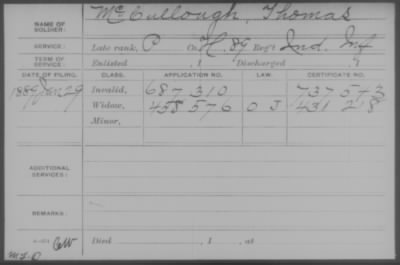 NAME OF SOLDIER: McCullough, Thomas
SERVICE: Late rank, P Co. H, 89 Reg't Ind. Inf
TERM OF SERVICE: Enlisted , 1 Discharged , 1
DATE OF FILING. CLASS. APPLICATION NO. LAW. CERTIFICATE NO.
1889 Jan 29 Invalid, 687 310 737 573
Widow, 458 576 O J 431 218
Minor,
ADDITIONAL SERVICES:
REMARKS:
Died , 1 , at